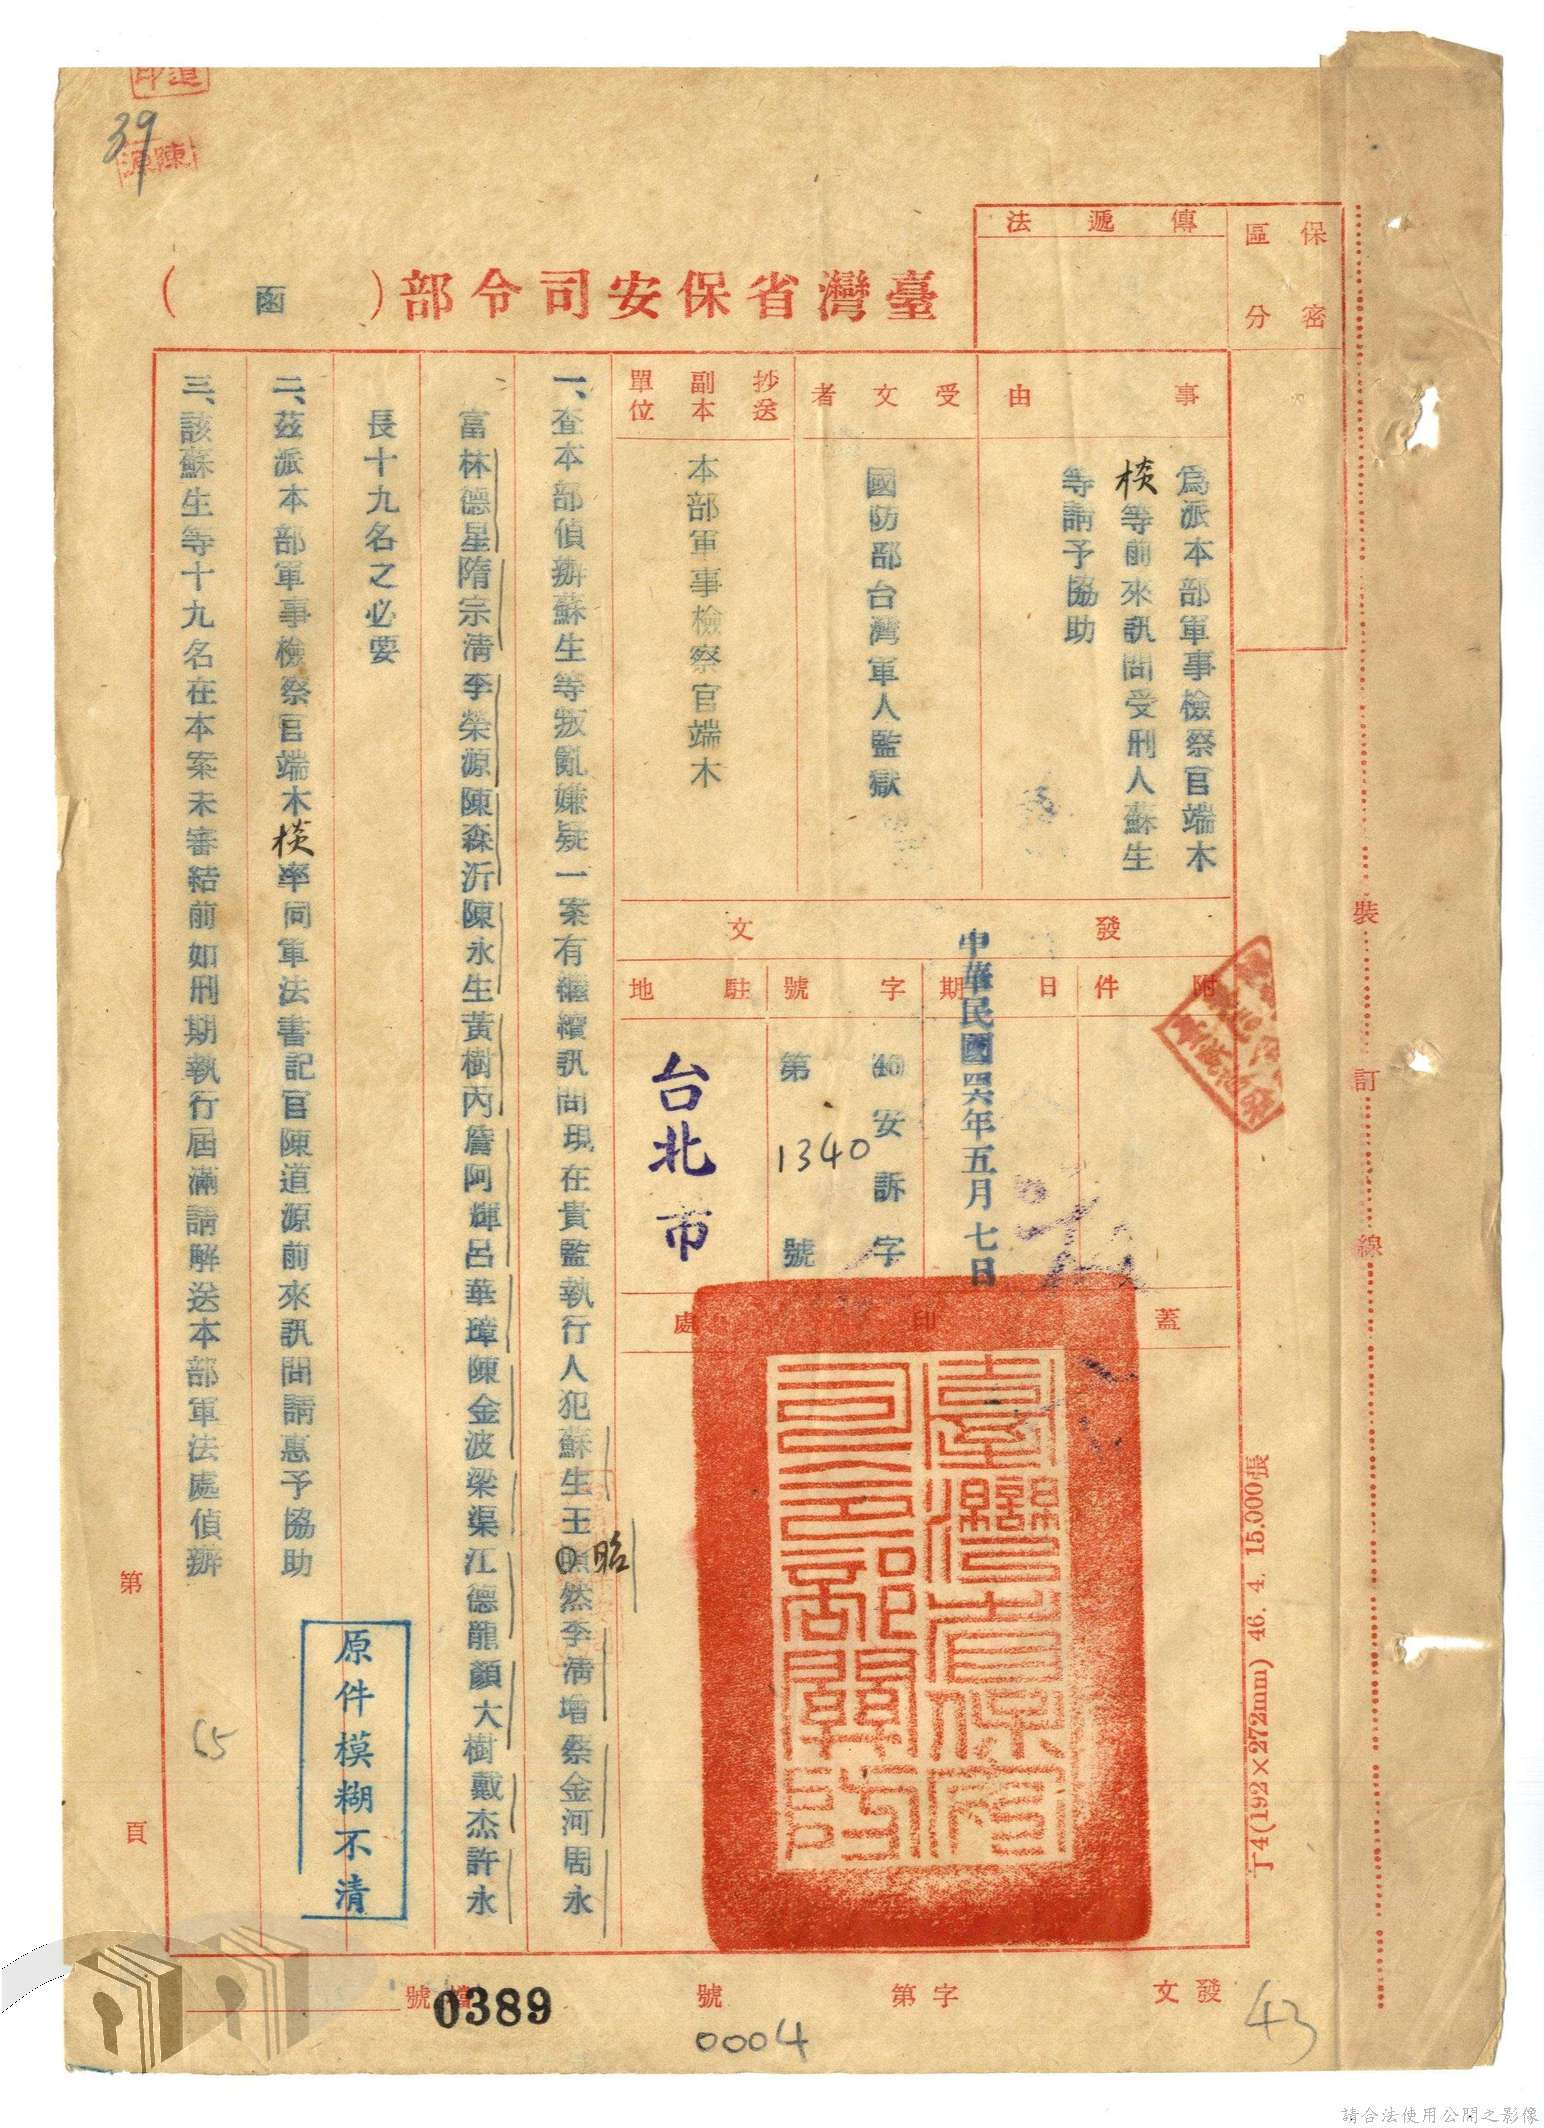 39
保密區分
傳遞法
臺灣省保安司令部(函)
事由
為派本部軍事檢察官端木
棪等前來訊問受刑人蘇生
等請予協助
受文者
國防部台灣軍人監獄
抄送副本單位
本部軍事檢察官端木
發文
附件
日期
中華民國四六年五月七日
字號
(46)安訴字
第1340號
駐地
台北市
蓋印處
臺灣省保安司令部關防
一、查本部偵辦蘇生等叛亂嫌疑一案有繼續訊問現在貴監執行人犯蘇生王昭然李清增蔡金河周永
富林德星隋宗清李榮源陳森沂陳永生黃樹丙詹阿輝呂華璋陳金波梁渠江德龍顏大樹戴杰許永
長十九名之必要
二、茲派本部軍事檢察官端木棪率同軍法書記官陳道源前來訊問請惠予協助
三、該蘇生等十九名在本案未審結前如刑期執行屆滿請解送本部軍法處偵辦
原件模糊不清
65
第頁
裝訂線
丁4(192×272mm) 46. 4. 15,000張
發文字第號
檔號
0389
0004
43
請合法使用公開之影像